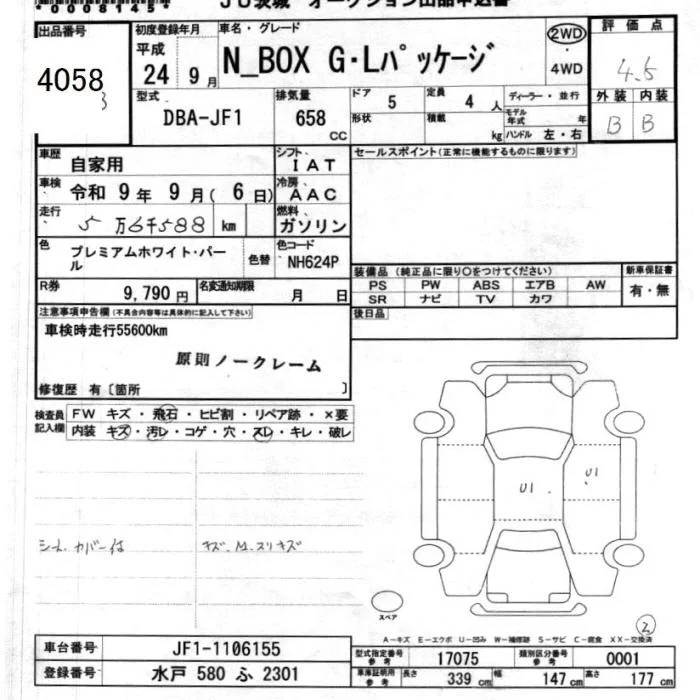 *00081450*
JU茨城 オークション出品申込書
出品番号
4058
3
初度登録年月
平成
24 9月
車名・グレード
N_BOX G・Lパッケージ
2WD
・
4WD
評価点
4.5
外装 内装
B B
型式
DBA-JF1
排気量
658
CC
ドア
5
定員
4 人
形状
積載
kg
ディーラー・並行
モデル年式 年
ハンドル 左・右
車歴
自家用
シフト
IAT
車検
令和 9年 9月(6日)
冷房
AAC
走行
5万6千588 km
燃料
ガソリン
色
プレミアムホワイト・パール
色替
色コード
NH624P
R券
9,790円
名変通知期限
月 日
セールスポイント(正常に機能するものに限ります)
装備品(純正品に限り○をつけてください)
PS PW ABS エアB AW
SR ナビ TV カワ
新車保証書
有・無
後日品
注意事項申告欄(不具合内容等は具体的に記入して下さい)
車検時走行55600km
原則ノークレーム
修復歴 有〔箇所 〕
検査員記入欄
FW キズ・飛石・ヒビ割・リペア跡・×要
内装 キズ・汚レ・コゲ・穴・スレ・キレ・破レ
シート カバー付
キズ、M.スリキズ
U1
U1
スペア
2
A-キズ E-エクボ U-凹み W-補修跡 S-サビ C-腐食 XX-交換済
車台番号
JF1-1106155
登録番号
水戸 580 ふ 2301
型式指定番号
参考
17075
類別区分番号
参考
0001
車庫証明用
参考
長さ
339 cm
幅
147 cm
高さ
177 cm